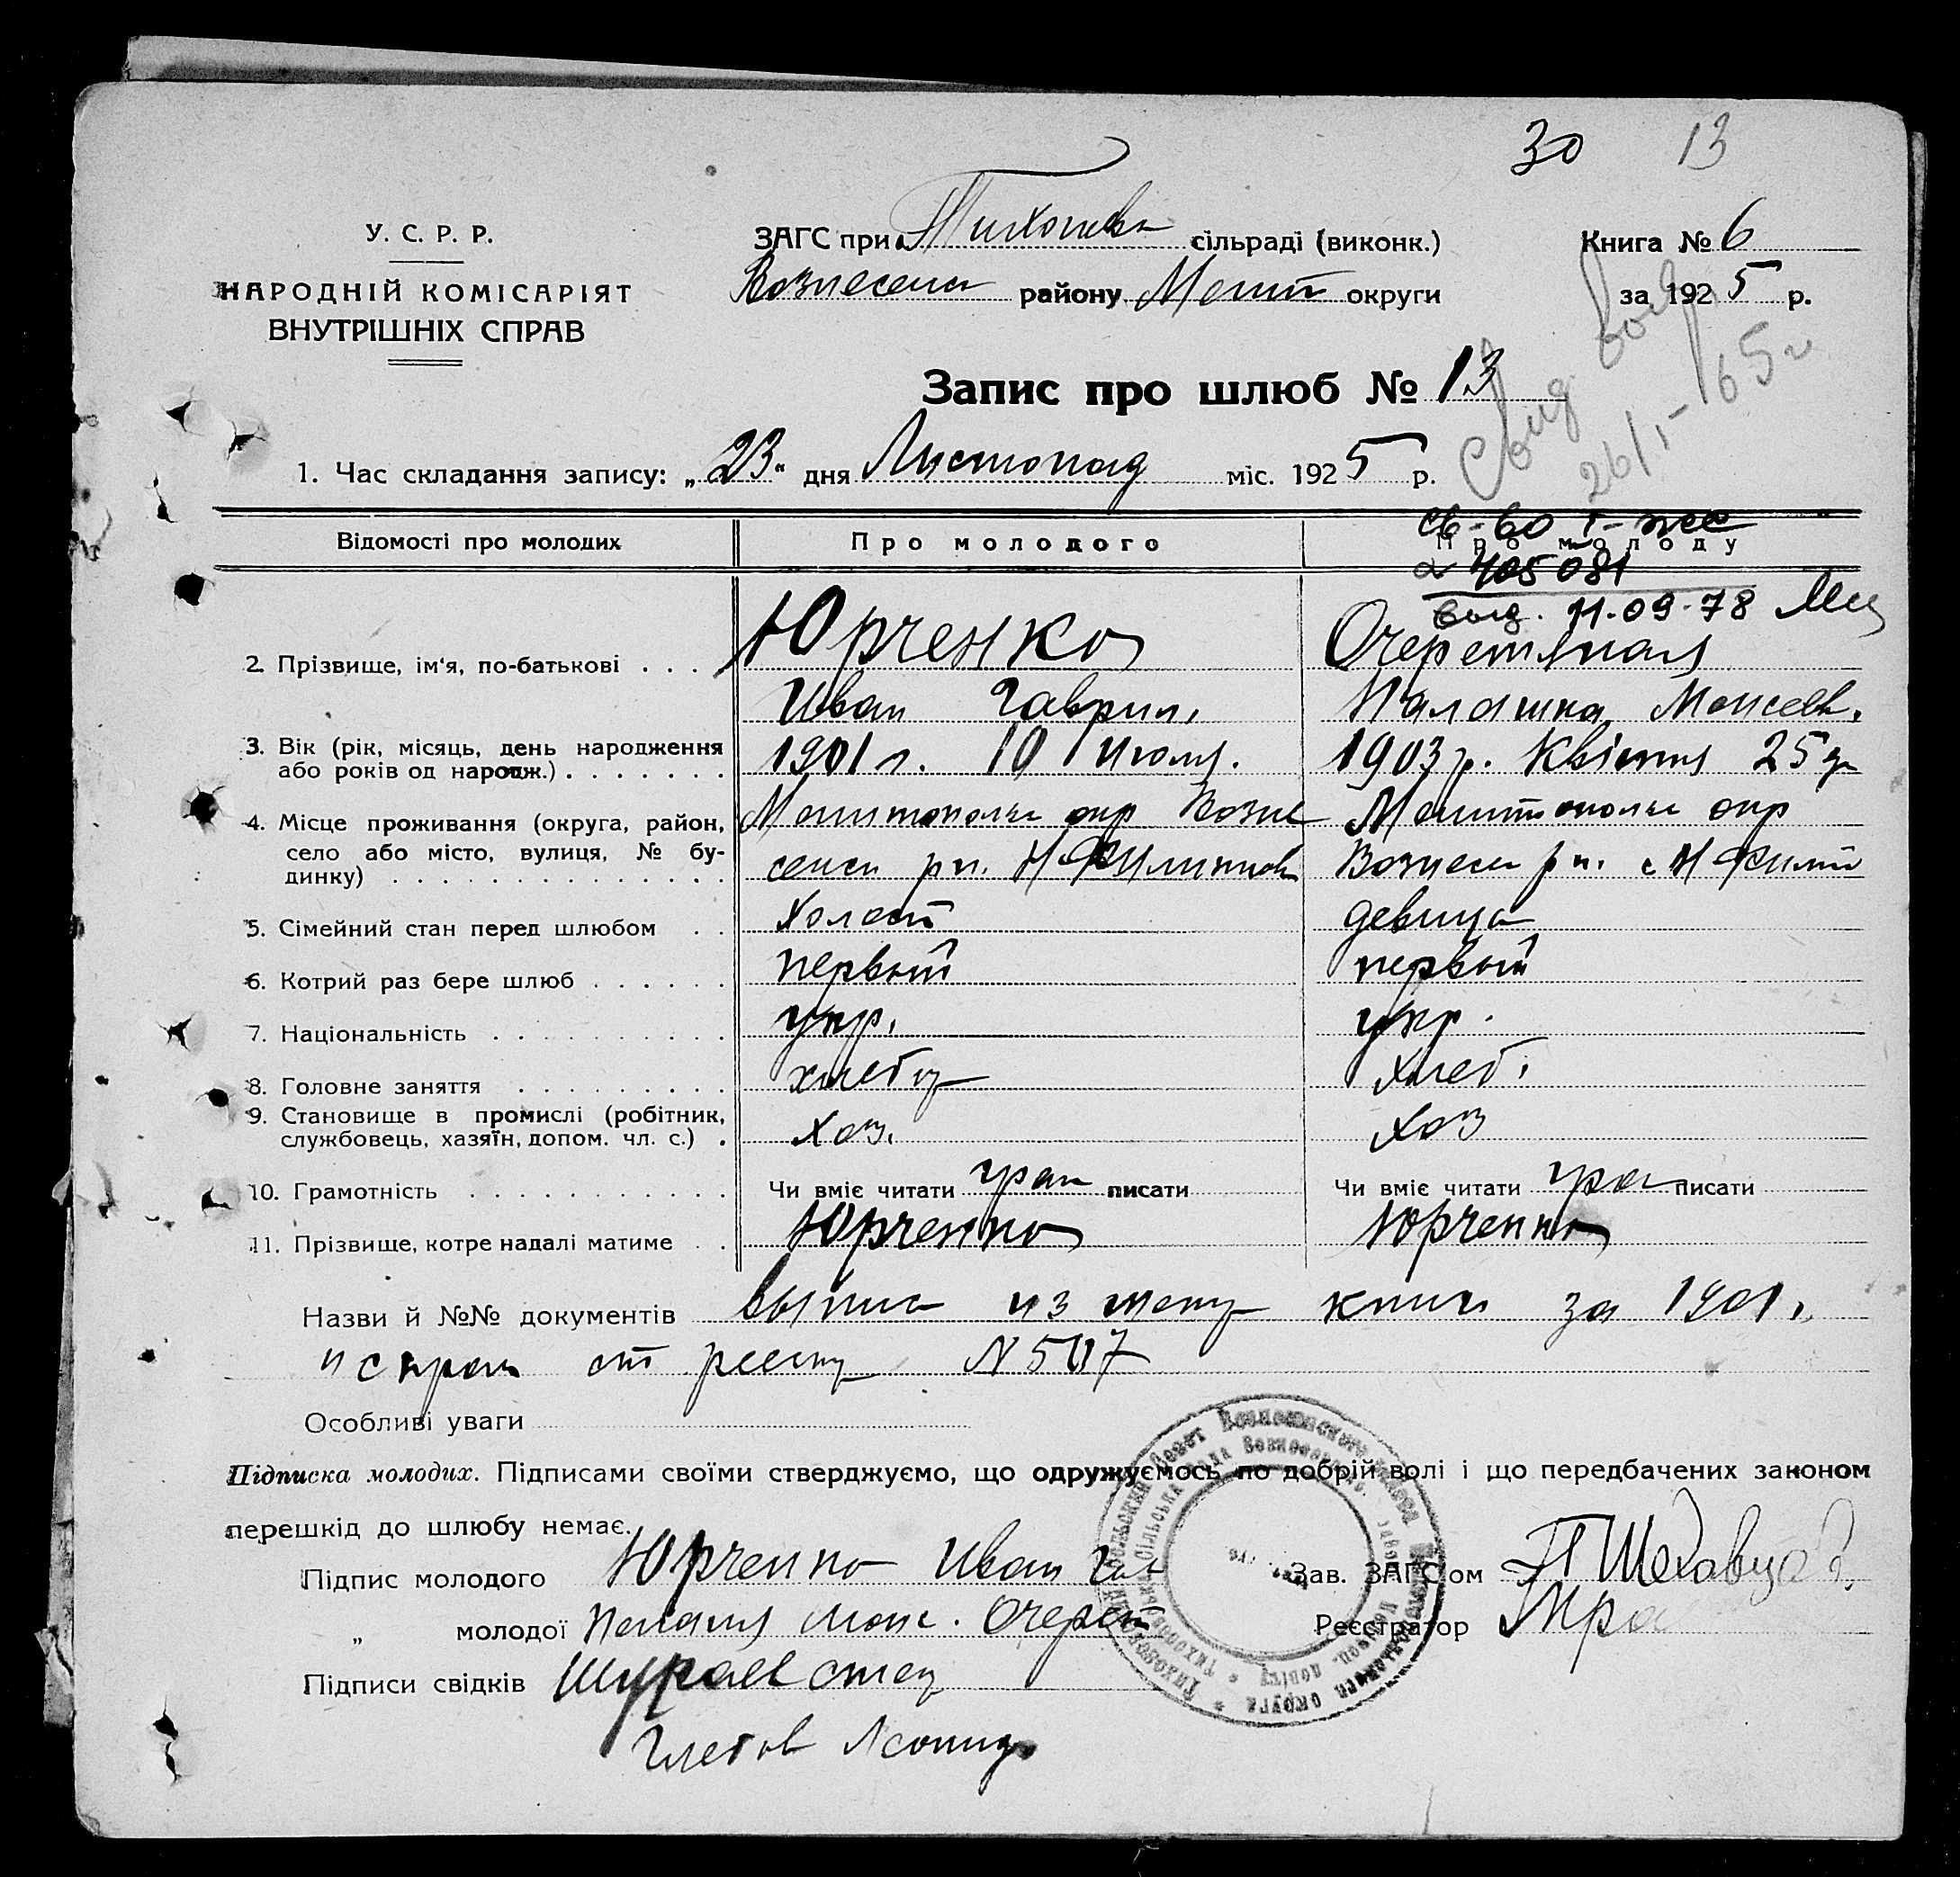 30 13
У. С. Р. Р.
НАРОДНІЙ КОМІСАРІЯТ
ВНУТРІШНІХ СПРАВ
ЗАГС при Тихонов сільраді (виконк.)
Вознесенс району Мелит округи
Книга № 6
за 1925 р.
Запис про шлюб № 13
Свид. выд
26/I-65г
1. Час складання запису: „23" дня Листопад міс. 1925 р.
Св-во I-жс
405081
выд. 11.09.78
Відомості про молодих Про молодого Про молоду
2. Прізвище, ім'я, по-батькові . . . . Юрченко Очеретяная
Иван Гаврил. Палашка Моисеев.
3. Вік (рік, місяць, день народження
або років од народж.) . . . . . . . 1901 г. 10 Июля. 1903 р. Квітня 25 д
4. Місце проживання (округа, район, Мелитопольс окр Возне Мелитопольс окр
село або місто, вулиця, № бу-
динку) . . . . . . . . . . . . . . сенск рн. Н Филиппов Вознесен рн. с Н Филип
5. Сімейний стан перед шлюбом . . Холост девица
6. Котрий раз бере шлюб . . . . . . первый первый
7. Національність . . . . . . . . . . укр. укр.
8. Головне заняття . . . . . . . . . хлебор хлеб.
9. Становище в промислі (робітник,
службовець, хазяїн, допом. чл. с.) . хоз. хоз
10. Грамотність . . . . . . . . . . . Чи вміє читати грам писати Чи вміє читати гра писати
11. Прізвище, котре надалі матиме . . Юрченко Юрченко
Назви й №№ документів выпис из метр книги за 1901 г.
и справ от № 507
Особливі уваги
Підписка молодих. Підписами своїми стверджуємо, що одружуємось по добрій волі і що передбачених законом
перешкід до шлюбу немає.
Підпис молодого Юрченко Иван Гав
Зав. ЗАГС'ом
„ молодої Пелагия Моис. Очерет
Реєстратор
Підписи свідків
Глебов Леонид